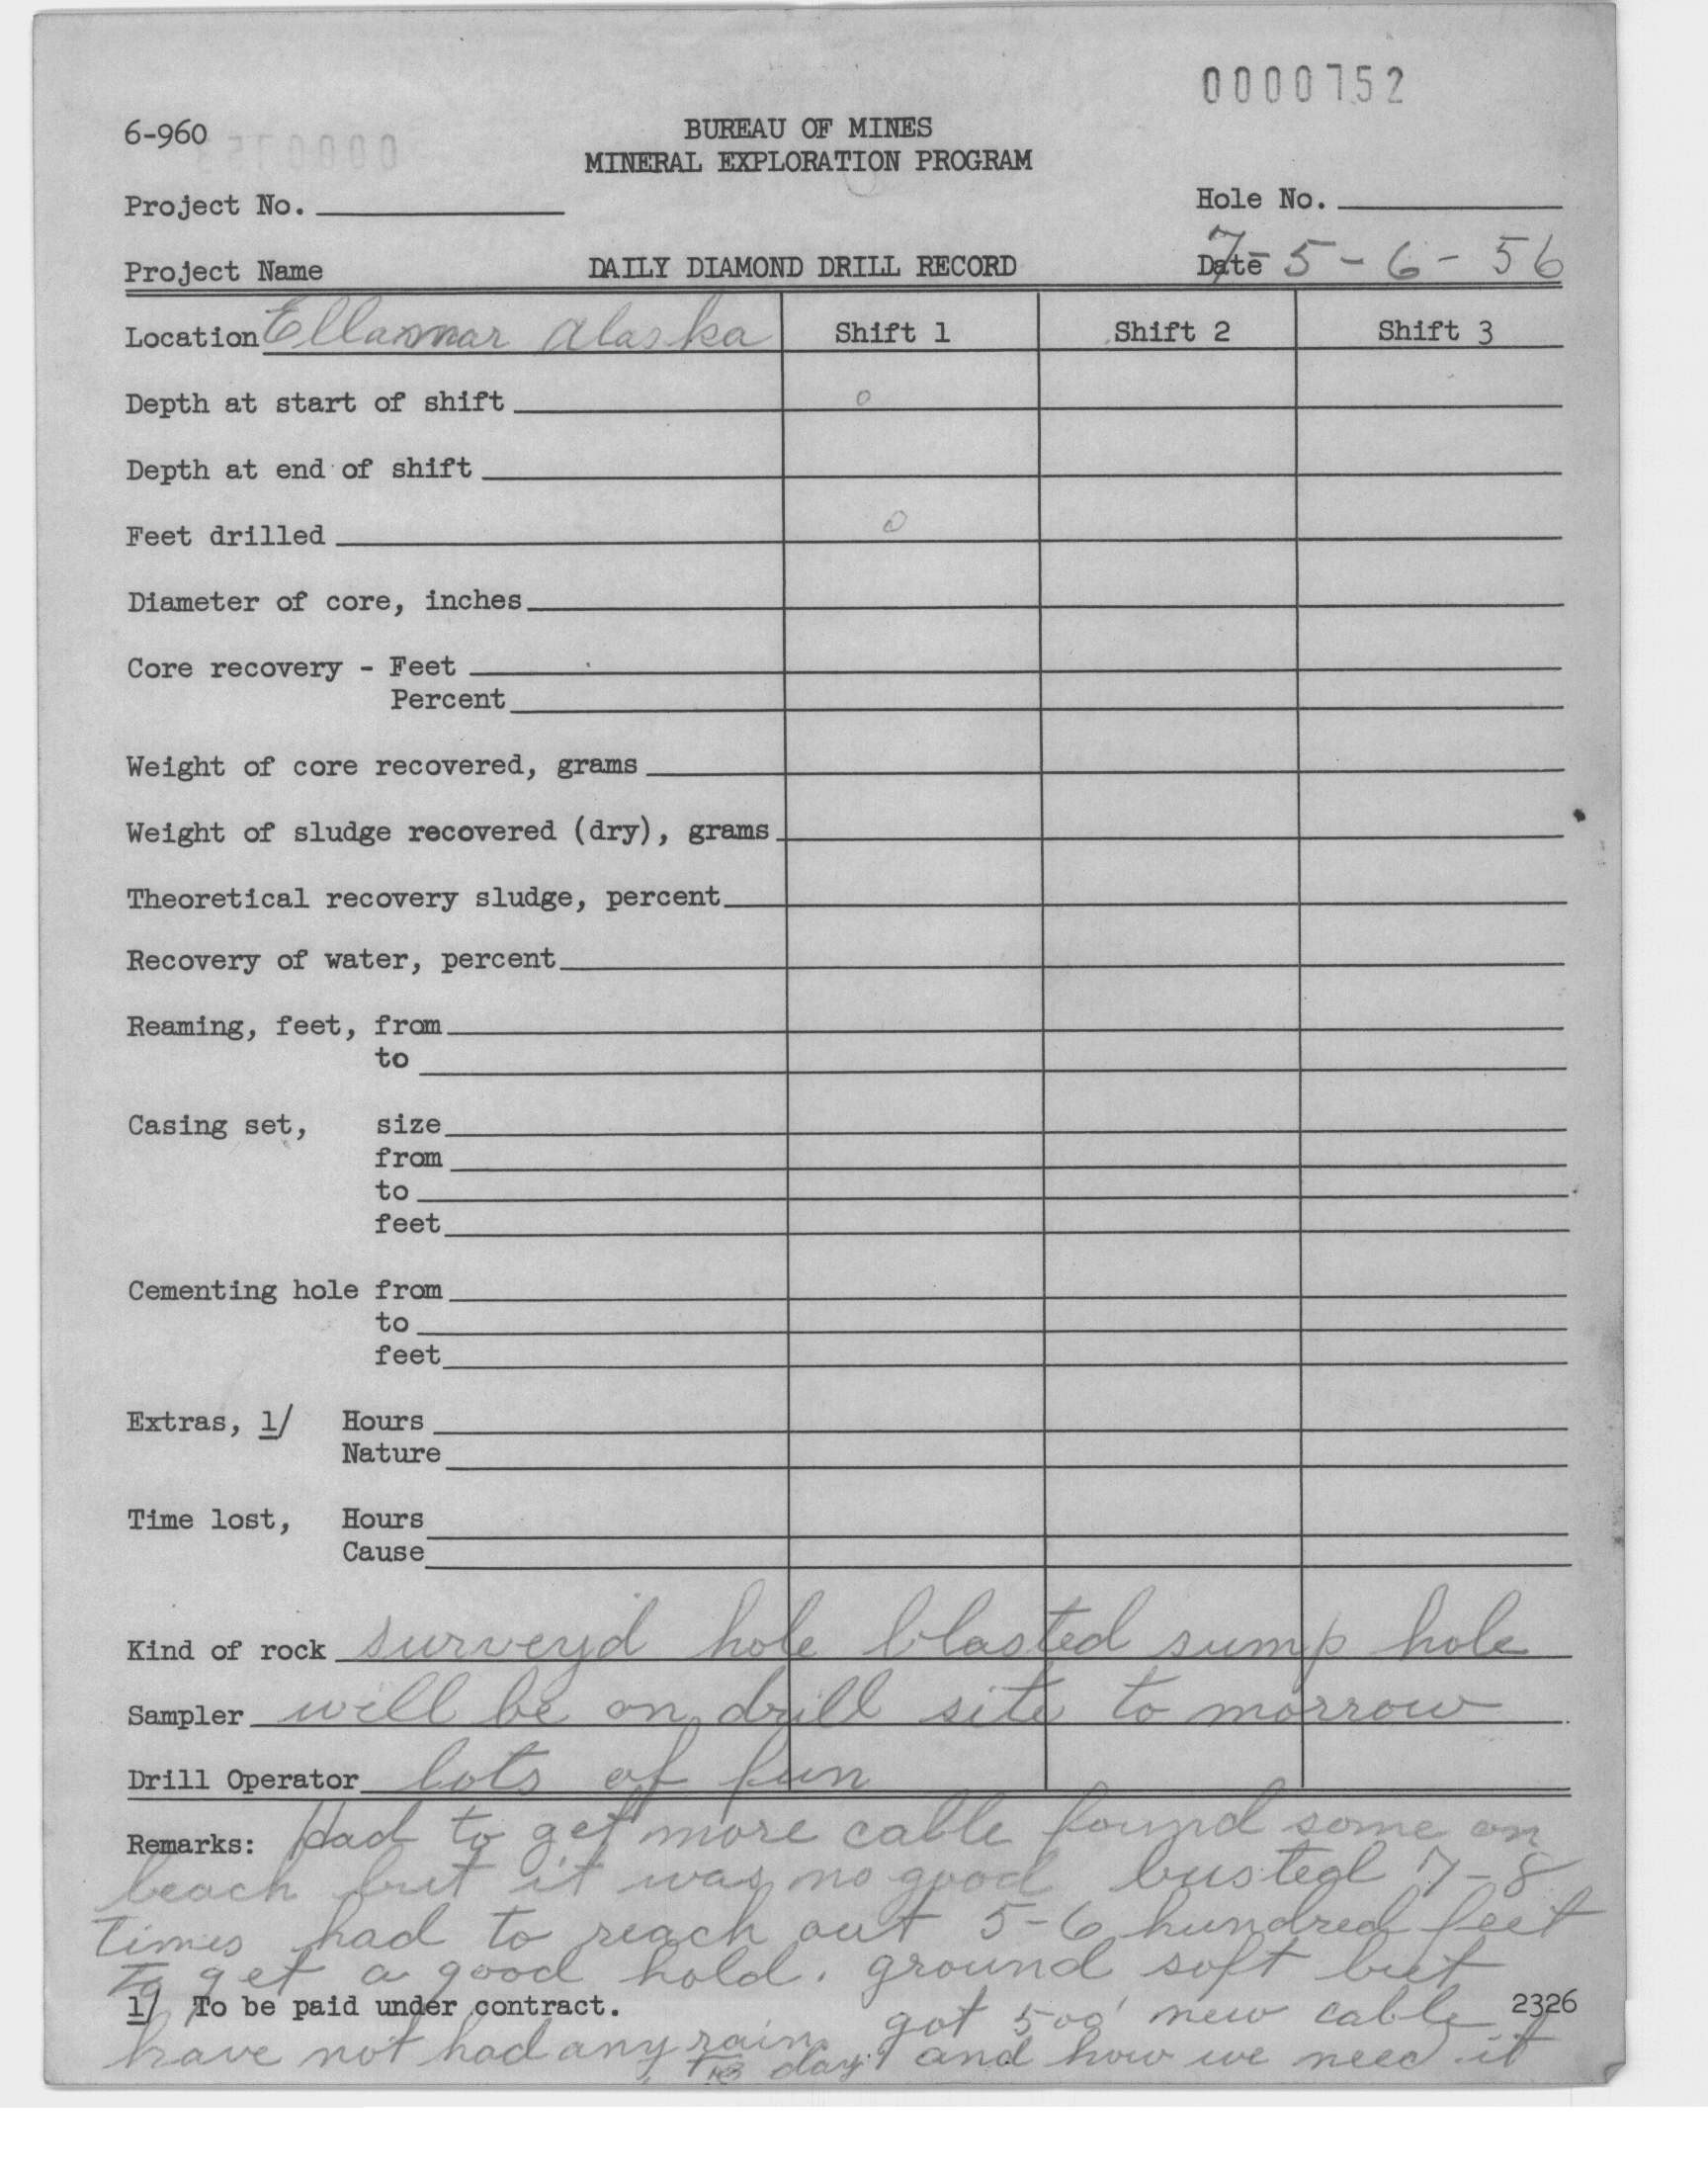 0000752
6-960
BUREAU OF MINES
MINERAL EXPLORATION PROGRAM
Project No. Hole No.
Project Name DAILY DIAMOND DRILL RECORD Date 7-5-6-56
Location Ellamar Alaska Shift 1 Shift 2 Shift 3
Depth at start of shift 0
Depth at end of shift
Feet drilled 0
Diameter of core, inches
Core recovery - Feet
Percent
Weight of core recovered, grams
Weight of sludge recovered (dry), grams
Theoretical recovery sludge, percent
Recovery of water, percent
Reaming, feet, from
to
Casing set, size
from
to
feet
Cementing hole from
to
feet
Extras, 1/ Hours
Nature
Time lost, Hours
Cause
Kind of rock surveyd hole blasted sump hole
Sampler will be on drill site to morrow
Drill Operator lots of fun
Remarks: Had to get more cable found some on
beach but it was no good busted 7-8
times had to reach out 5-6 hundred feet
to get a good hold. ground soft but
1/ To be paid under contract. 2326
have not had any rain
got 500' new cable
day and how we need it